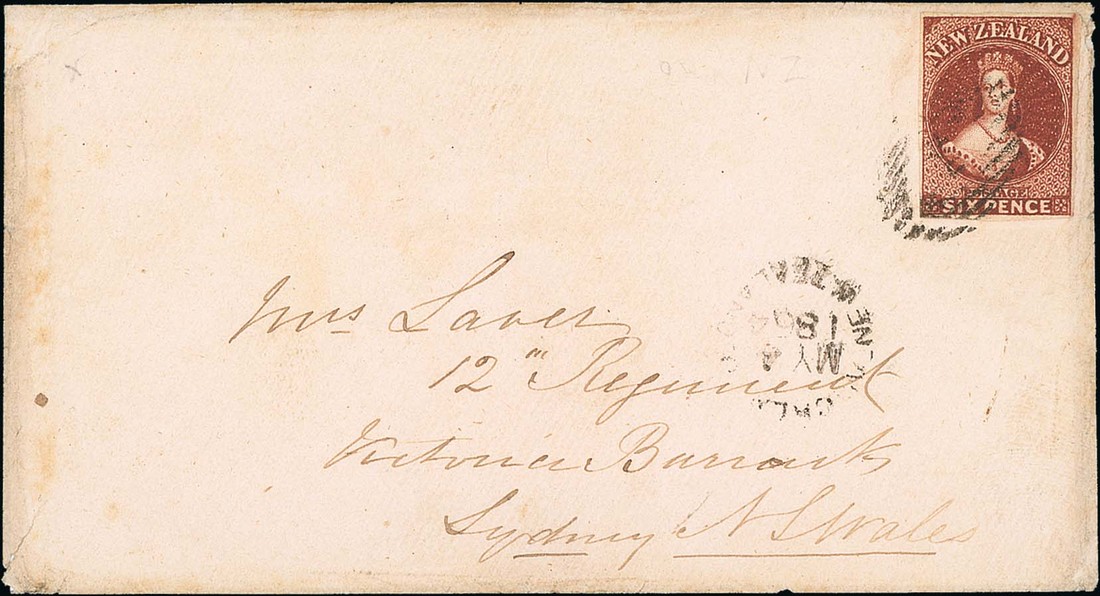 NEW ZEALAND
POSTAGE
SIXPENCE
MY 4
1864
Mrs Laver
12th Regiment
Victoria Barracks
Sydney N S Wales